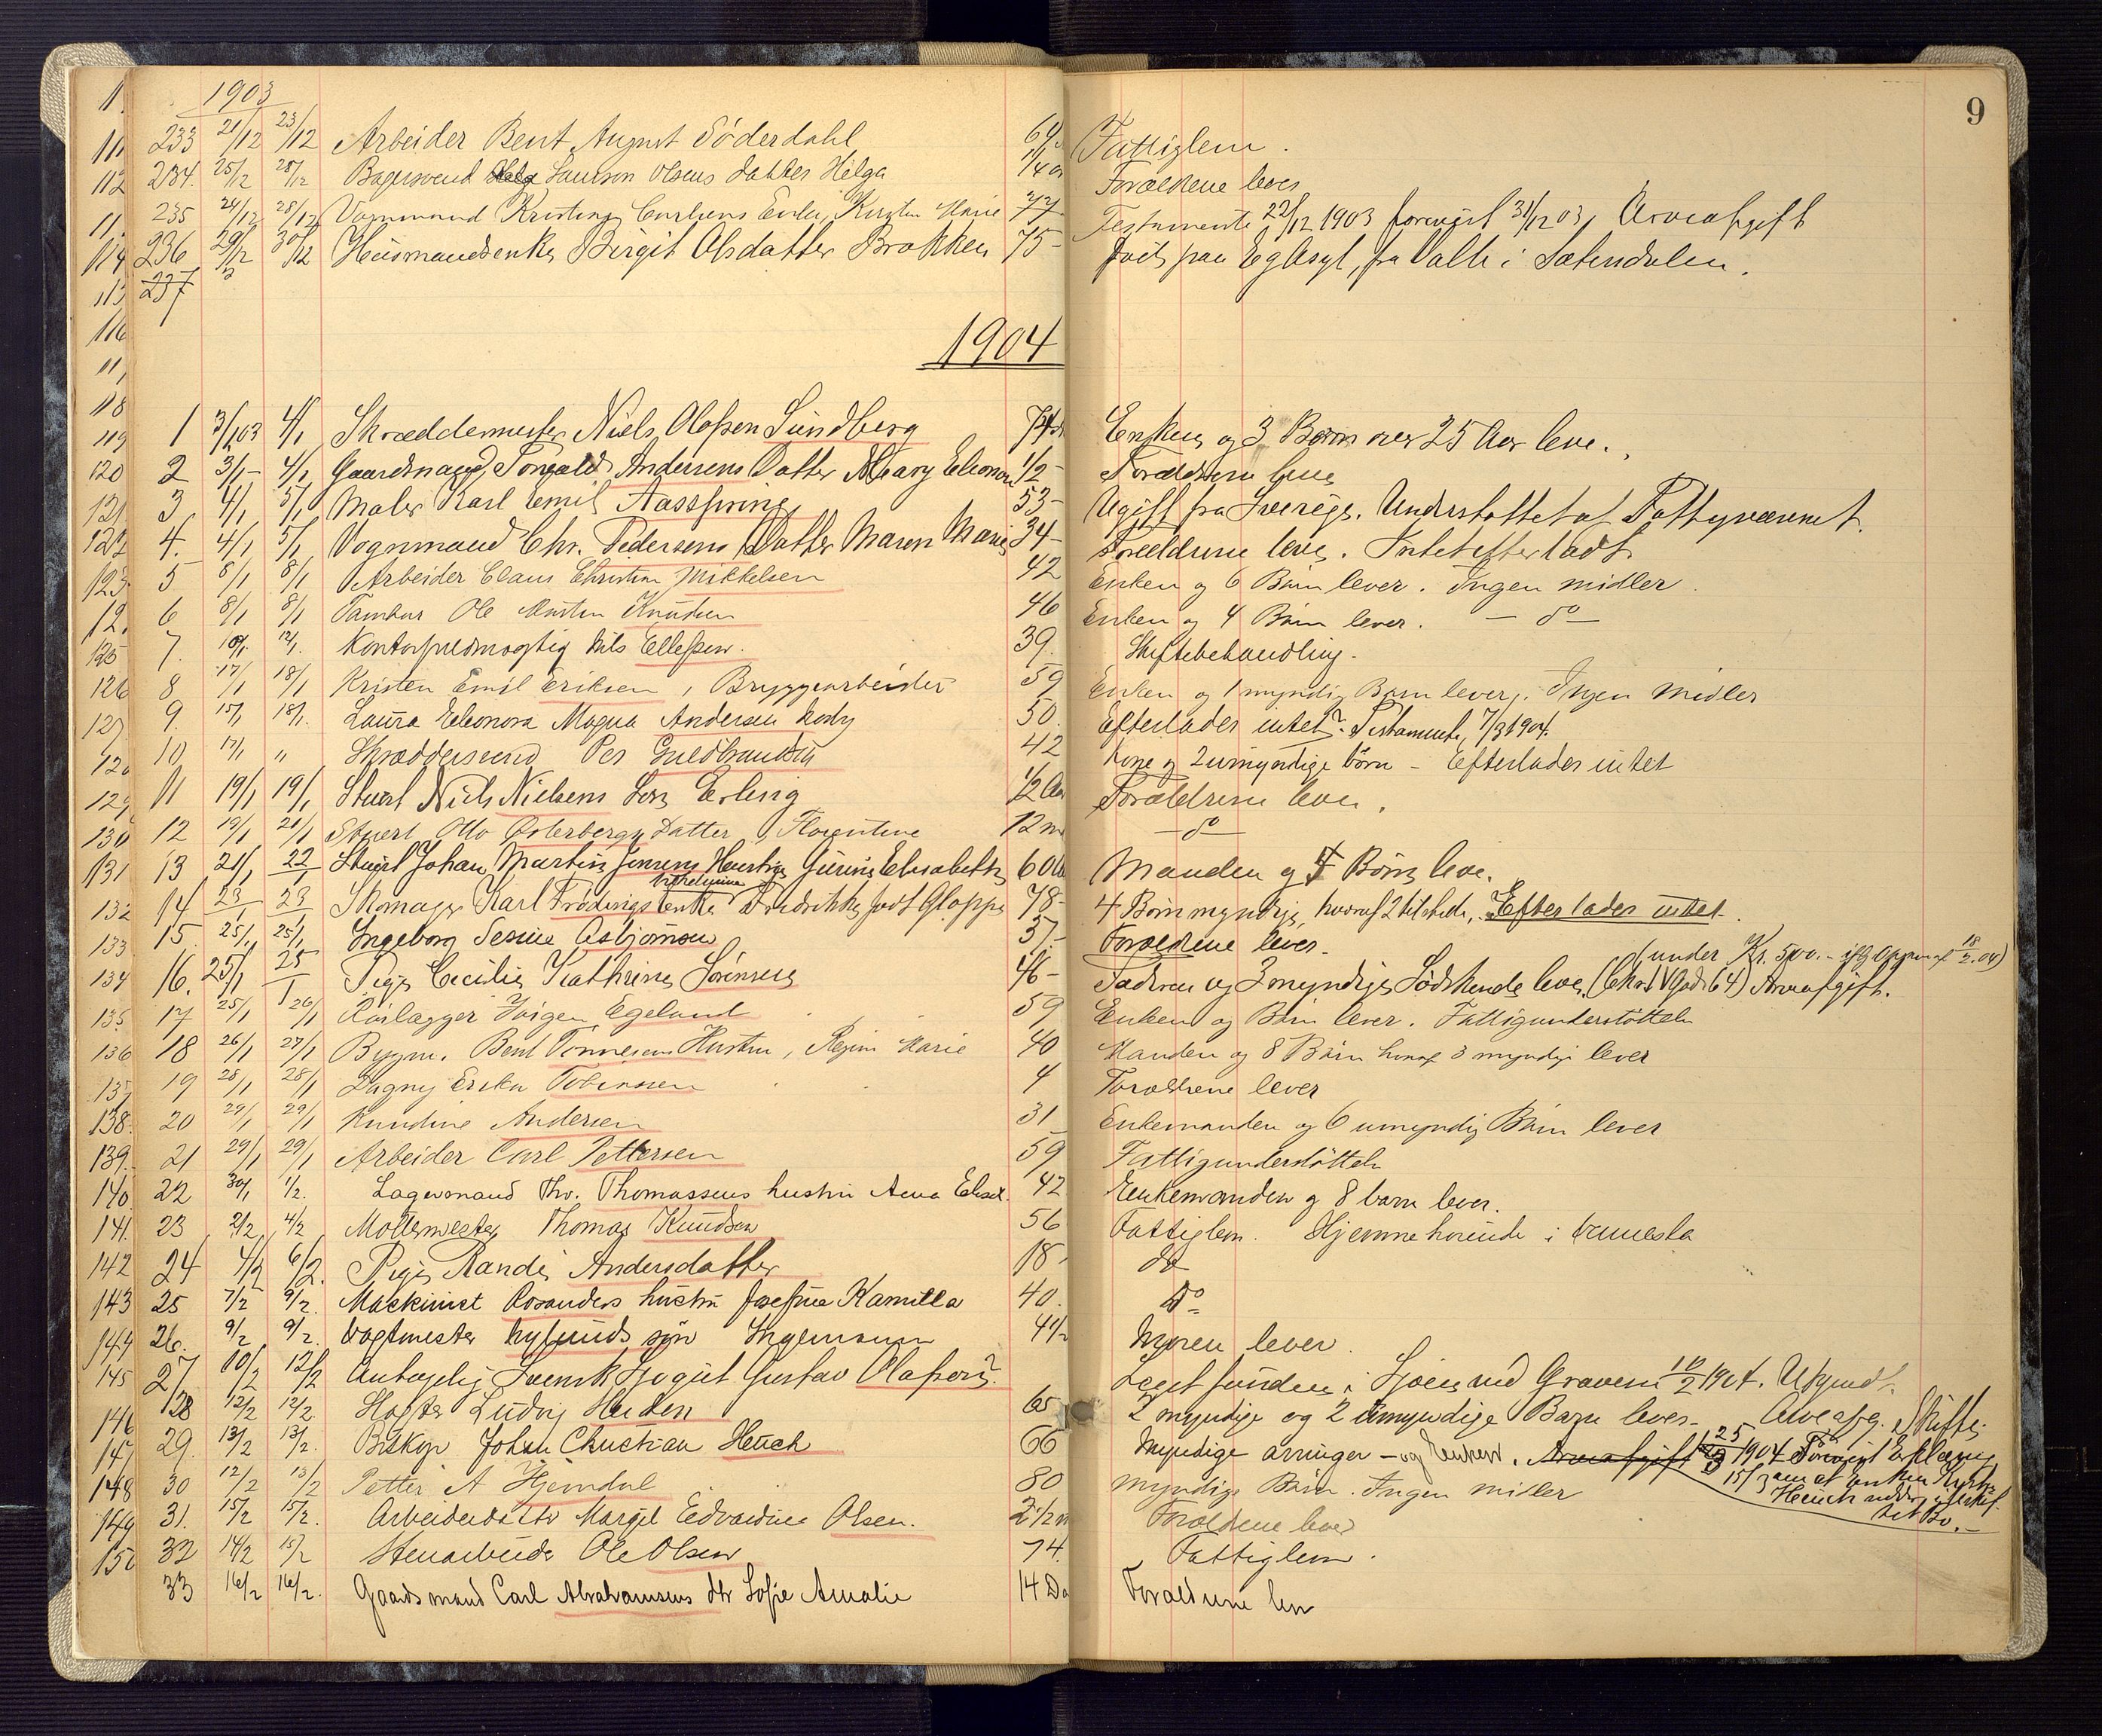 9
1903
233 21/12 23/12 Arbeider Bent August Söderdahl 64 Fattiglem.
234. 25/12 28/12 Bagersvend Samson Olsens datter Helga 1/4 Forældrene lever
235 24/12 28/12 Vognmand Kristian Carlsens Enke, Kirsten Marie 77 Testamente 22/12 1903 forevist 31/12 03, Arveafgift
236 29/12 30/12 Husmandsenke Birgit Olsdatter Brokken 75- født paa Eg Asyl, fra Valle i Sætersdalen.
237
1904
1 3/1 03 4/1 Skræddermester Niels Olassen Sundberg 74 Enken og 3 Børn over 25 Aar leve.
2 3/1- 4/1 Gaardmand Torvald Andersens Datter Mary Eleonora 1/2- Forældrene leve
3 4/1 5/1 Maler Karl Emil Aasspring 53- Ugift fra Sverige. Understøttet af Fattigvæsenet.
4. 4/1 5/1 Vognmand Chr. Pedersens Datter Maren Marie 34- Forældrene leve. Intet efterladt
5 8/1 8/1 Arbeider Claus Christian Mikkelsen 42 Enken og 6 Børn lever. Ingen midler.
6 8/1 8/1 Tambur Ole Martin Knudsen 46 Enken og 4 Børn lever. — do —
7. 10/1 12/1. Kontorfuldmægtig Nils Ellefsen. 39. Skiftebehandling.
8 17/1 18/1 Kristen Emil Eriksen, Bryggearbeider 59 Enken og 1 myndig Barn lever, Ingen Midler
9. 15/1 18/1. Laura Eleonora Magna Andersen 50. Efterlader intet? Testamente, 7/3 1904.
10 17/1 " Skræddersvend Per Guldbrandsen 42 Kone og 2 umyndige børn - Efterlader intet
11 19/1 19/1 Stuert Niels Nielsens Søn Erling 1/2 Aar Forældrene lever.
12 19/1 21/1 Stuert Otto Østerbergs Datter, Florentine 12 m — do —
13 21/1 22/1 Stuert Johan Martin Jensens Hustru Gurine Elisabeth 60 Manden og 4 Børn leve.
14 23/1 23/1 Skomager Karl Frödings Enke Vilhelmina Fredrikke født Gloppe 78- 4 Børn myndige, hvoraf 2 tilstede, Efterlader intet.
15. 25/1 25/1 Ingeborg Sesine Asbjörnsen 3/- Forældrene lever.
(under Kr. 500.- 18/2.04)
16. 25/1 25/1 Pige Cecilie Kathrine Sørensen 46- Faderen og 3 myndige Sødskende leve, (Chr. IV Gade 64) Arveafgift.
17 25/1 26/1 Rørlægger Jörgen Egeland 59 Enken og Børn lever. Fattigunderstöttelse
18 26/1 27/1 Bygm. Bent Tönnesens Hustru, Regine Marie 40 Manden og 8 Børn hvoraf 3 myndige lever
19 28/1 28/1 Dagny Erika Tobiassen 4 Forældrene lever
20 29/1 29/1 Kundine Andersen 31 Enkemanden og 6 umyndig Børn lever
21 29/1 29/1 Arbeider Carl Pettersen 59 Fattigunderstöttelse
22 30/1 1/2. Lagermand Thv. Thomassens hustru Anna Elisa. 42 Enkemanden og 8 barn lever.
23 2/2 4/2 Möllemester Thomas Knudsen 56 Fattiglem. Hjemmehørende i Vennesla
24 4/2 6/2. Pige Randi Andersdatter 18- do
25 7/2 9/2. Maskinist Rosanders hustru Josefine Kamilla 40. do
26. 9/2 9/2. Vagtmester Nylunds søn Ingemann 4 1/2 Moren lever.
27 10/2 12/2 Antagelig Svensk Gustav Olafsen? Leget funden i Sjøen ved Gravene 10/2 1904. Ukjendt.
28 12/2 12/2. Ludvig Heiden 65 2 myndige og 2 umyndige Barn lever. Arveafg. Skifte.
29. 13/2 13/2. Biskop Johan Christian Heuch 66 Myndige arvinger - og Enken. Arveafgift 25/2 1904 Forevist Erklæring
15/3 om at enken
Heuch
30 12/2 13/2 Petter A Hjemdal 80 Myndige Børn. Ingen midler
31. 15/2 15/2. Arbeiderdatter Margit Edvardine Olsen. 2 1/2 m Forældrene lever
32 14/2 15/2 Stenarbeider Ole Olsen 74. Fattiglem.
33 16/2 16/2. Gaardsmand Carl Abrahamsens dtr Sofie Amalie 14 Da Forældrene lever